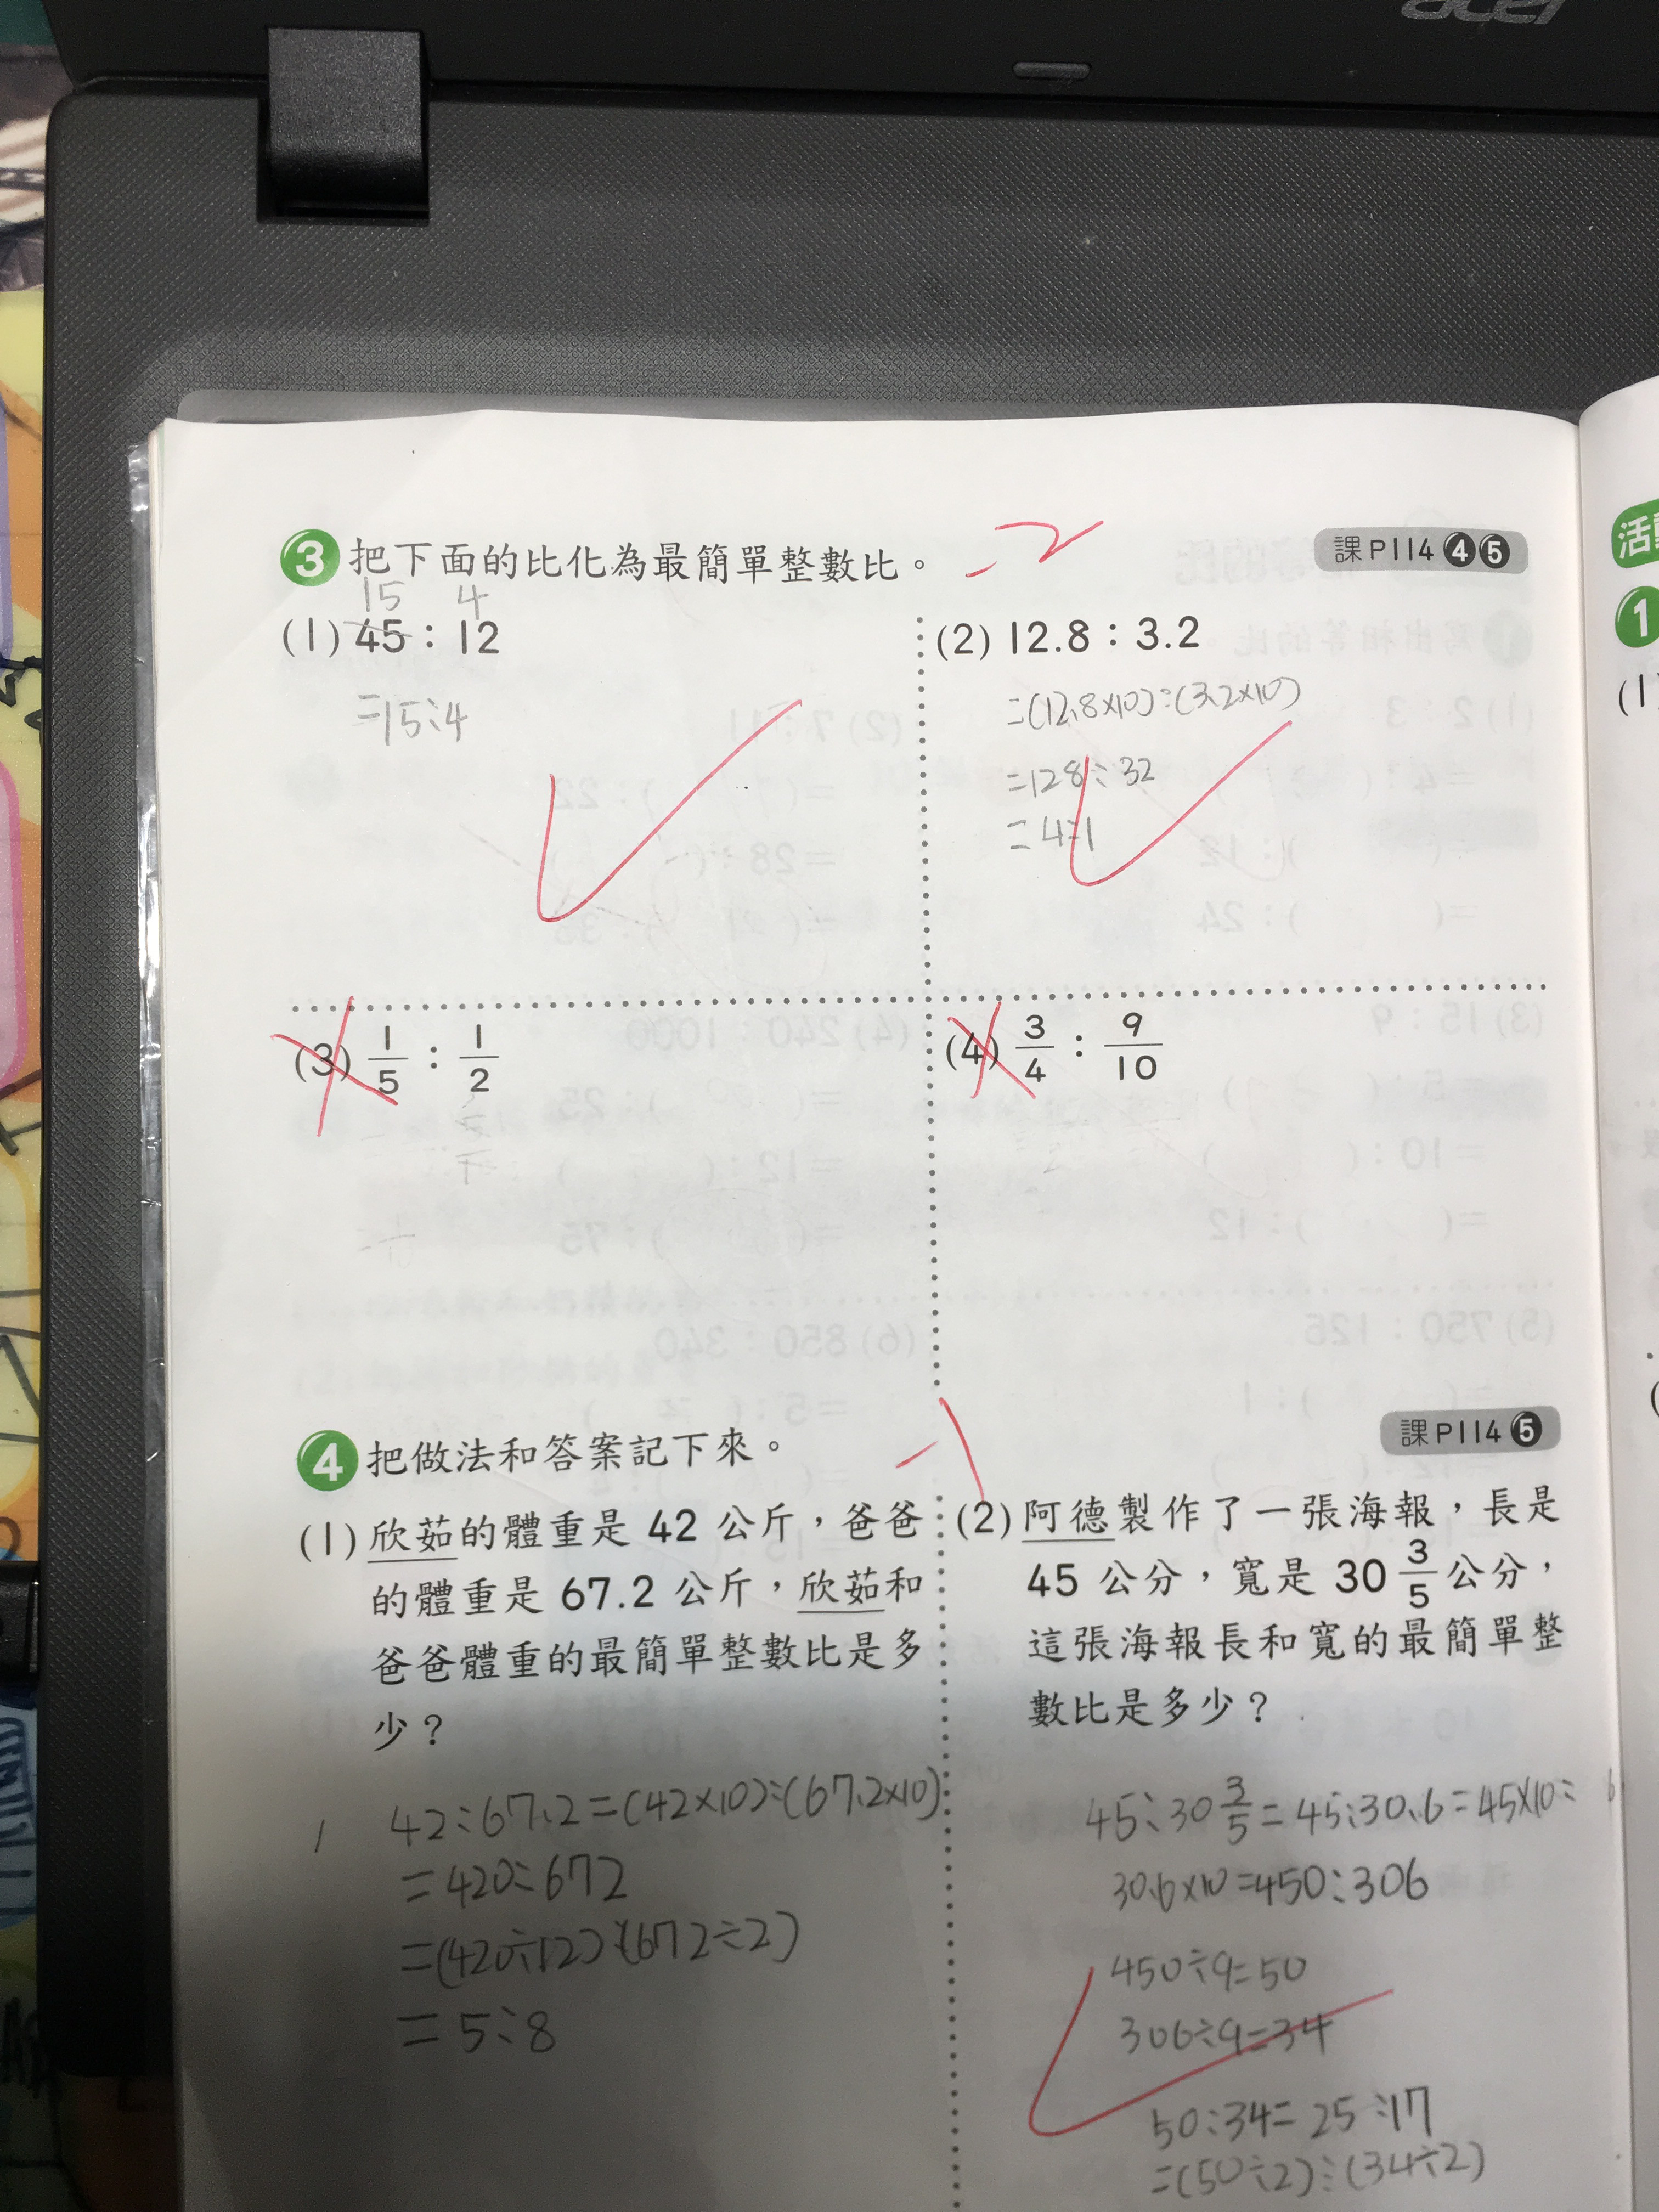 acer
3 把下面的比化為最簡單整數比。 -2 課P114 4 5
15 4
(1) 45：12
=15:4
(2) 12.8：3.2
=(12.8×10):(3.2×10)
=128:32
=4:1
(3) 1/5：1/2
(4) 3/4：9/10
4 把做法和答案記下來。 -1 課P114 5
(1) 欣茹的體重是 42 公斤，爸爸
的體重是 67.2 公斤，欣茹和
爸爸體重的最簡單整數比是多
少？
42:67.2=(42×10):(67.2×10)
=420:672
=(420÷12):(672÷2)
=5:8
(2) 阿德製作了一張海報，長是
45 公分，寬是 30 3/5 公分，
這張海報長和寬的最簡單整
數比是多少？
45:30 3/5=45:30.6=45×10:
30.6×10=450:306
450÷9=50
306÷9=34
50:34=25:17
=(50÷2):(34÷2)
活
1
(1)